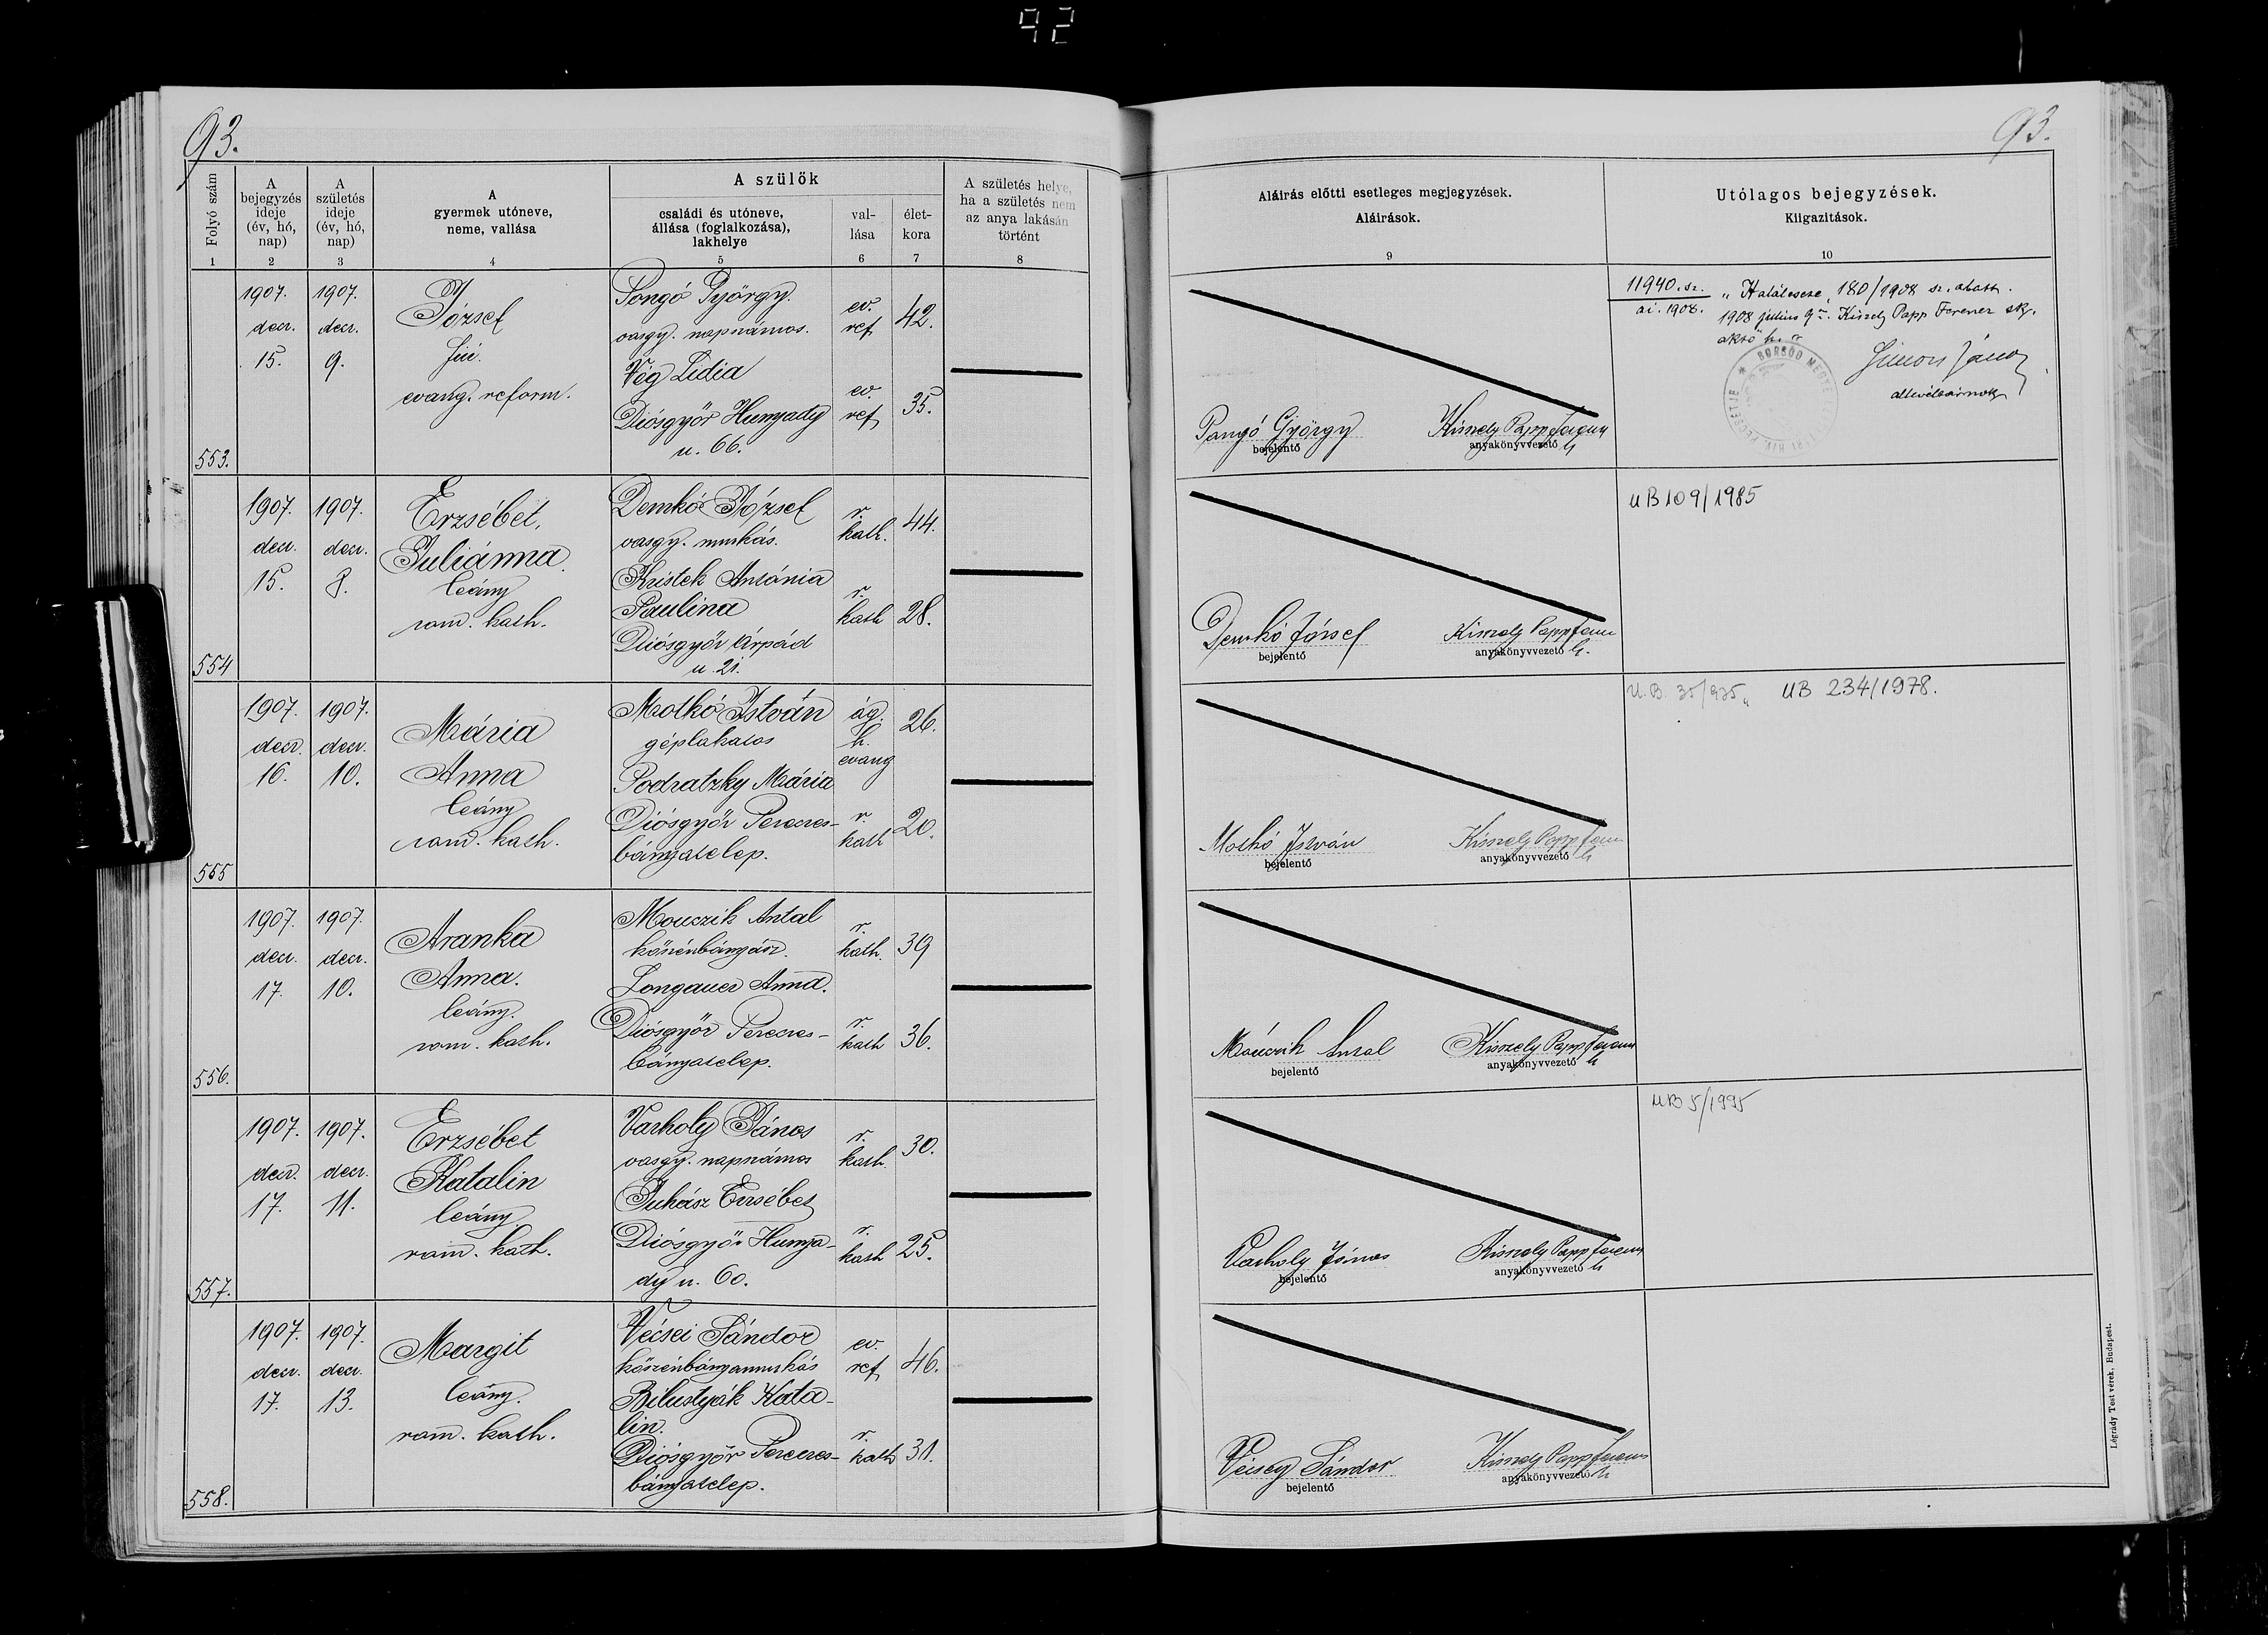 92
93.
93.
Folyó szám
A bejegyzés ideje (év, hó, nap)
A születés ideje (év, hó, nap)
A gyermek utóneve, neme, vallása
A szülők
családi és utóneve, állása (foglalkozása), lakhelye
val-
lása
élet-
kora
A születés helye, ha a születés nem az anya lakásán történt
Aláirás előtti esetleges megjegyzések.
Aláirások.
Utólagos bejegyzések.
Kiigazitások.
1 2 3 4 5 6 7 8 9 10
553.
1907. decr. 15.
1907. decr. 9.
József
fiú.
evang. reform.
Pongó György.
vasgy. napszámos.
ev. ref 42.
Vég Lidia
ev. ref 35.
Diósgyőr Hunyady
u. 66.
Pongó György
bejelentő
Kiszely Papp Ferencz
anyakönyvvezető h
11940. sz.
ai. 1908.
180/1908 sz. alatt.
1908 julius 9. Kiszely Papp Ferencz
BORSOD MEGYE
János
554
1907. decr. 15.
1907. decr. 8.
Erzsébet,
Juliánna.
leány
rom. kath.
Demkó József
vasgy. munkás.
r. kath. 44.
Kristek Antónia
Paulina
r. kath 28.
Diósgyőr Árpád
u. 21.
Demkó József
bejelentő
Kiszely Papp Ferencz
anyakönyvvezető h.
UB 109/1985
555
1907. decr. 16.
1907. decr. 10.
Mária
Anna
leány
rom. kath.
Motkó István
géplakatos
ág. h. evang 26.
Podratzky Mária
r. kath 20.
Diósgyőr Pereces-
bányatelep.
Motkó István
bejelentő
Kiszely Papp Ferencz
anyakönyvvezető h
U.B. 35/935
UB 234/1978.
556.
1907. decr. 17.
1907. decr. 10.
Aranka
Anna.
leány.
rom. kath.
Mouczik Antal
kőszénbányász.
r. kath. 39
Longauer Anna.
r. kath 36.
Diósgyőr Pereces-
bányatelep.
Mouczik Antal
bejelentő
Kiszely Papp Ferencz
anyakönyvvezető h
557.
1907. decr. 17.
1907. decr. 11.
Erzsébet
Katalin
leány
rom. kath.
Varholy János
vasgy. napszámos
r. kath. 30.
Juhász Erzsébet
r. kath 25.
Diósgyőr Hunya-
dy u. 60.
Varholy János
bejelentő
Kiszely Papp Ferencz
anyakönyvvezető h
UB 5/1995
558.
1907. decr. 17.
1907. decr. 13.
Margit
leány.
rom. kath.
Vécsei Sándor
kőszénbányamunkás
ev. ref 46.
Bilustyák Kata-
lin.
r. kath 31.
Diósgyőr Pereces-
bányatelep.
Vécsey Sándor
bejelentő
Kiszely Papp Ferencz
anyakönyvvezető h
Légrády Testvérek, Budapest.